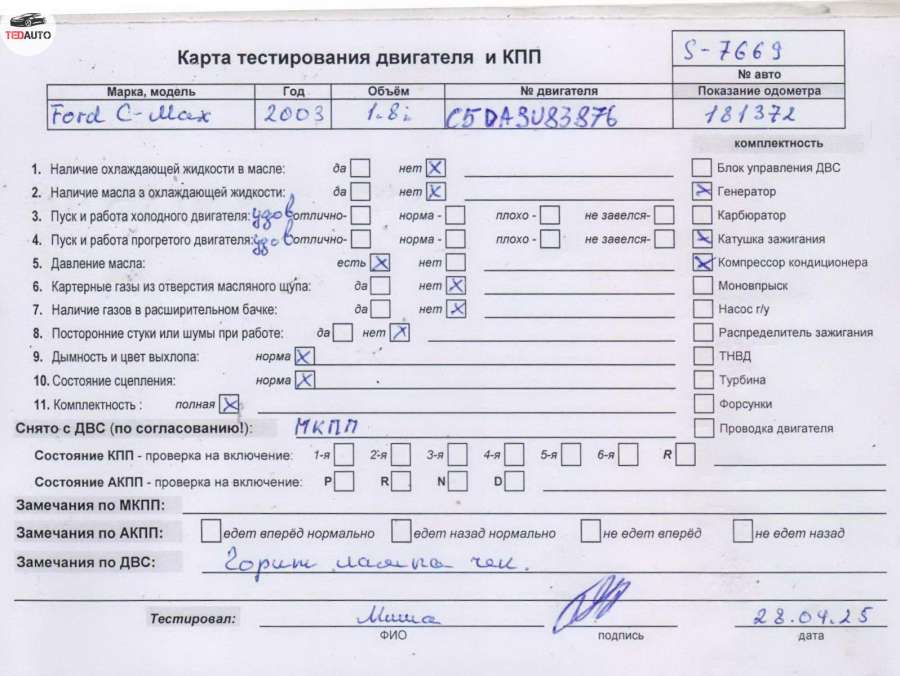 TEDAUTO
Карта тестирования двигателя и КПП
S-7669
№ авто
Марка, модель Год Объём № двигателя Показание одометра
Ford C-Max 2003 1.8i C5DA3U83876 181372
комплектность
1. Наличие охлаждающей жидкости в масле: да нет X Блок управления ДВС
2. Наличие масла а охлаждающей жидкости: да нет X X Генератор
3. Пуск и работа холодного двигателя: удов отлично- норма - плохо - не завелся- Карбюратор
4. Пуск и работа прогретого двигателя: удов отлично- норма - плохо - не завелся- X Катушка зажигания
5. Давление масла: есть X нет X Компрессор кондиционера
6. Картерные газы из отверстия масляного щупа: да нет X Моновпрыск
7. Наличие газов в расширительном бачке: да нет X Насос г/у
8. Посторонние стуки или шумы при работе: да нет X Распределитель зажигания
9. Дымность и цвет выхлопа: норма X ТНВД
10. Состояние сцепления: норма X Турбина
11. Комплектность : полная X Форсунки
Снято с ДВС (по согласованию!): МКПП Проводка двигателя
Состояние КПП - проверка на включение: 1-я 2-я 3-я 4-я 5-я 6-я R
Состояние АКПП - проверка на включение: P R N D
Замечания по МКПП:
Замечания по АКПП: едет вперёд нормально едет назад нормально не едет вперёд не едет назад
Замечания по ДВС: Горит лампа чек.
Тестировал: Миша 28.04.25
ФИО подпись дата